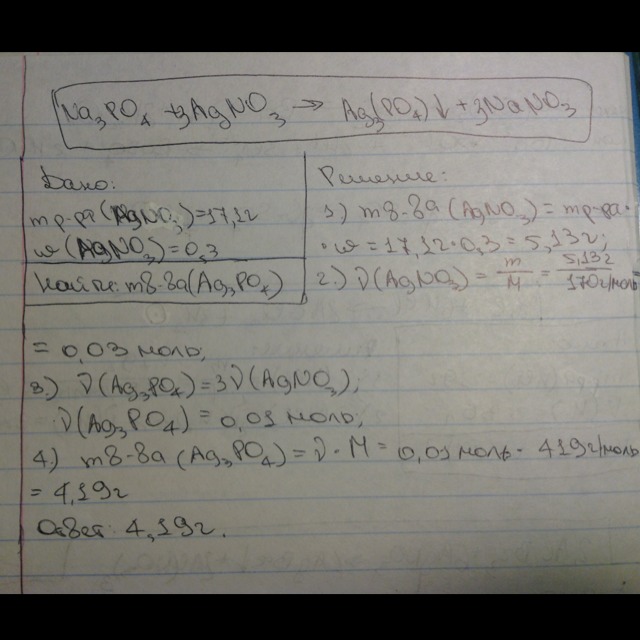 Na₃PO₄ + 3AgNO₃ → Ag₃(PO₄)↓ + 3NaNO₃
Дано:
mр-ра(AgNO₃)=17,1г
ω(AgNO₃)=0,3
Найти: mв-ва(Ag₃PO₄)
Решение:
1) mв-ва(AgNO₃)=mр-ра·
·ω=17,1г·0,3=5,13г;
2) ν(AgNO₃)=m/M=5,13г/170г/моль=
=0,03 моль;
3) ν(Ag₃PO₄)=3ν(AgNO₃);
ν(Ag₃PO₄)=0,01 моль;
4) mв-ва(Ag₃PO₄)=ν·M=0,01 моль·419г/моль
=4,19г
Ответ: 4,19г.